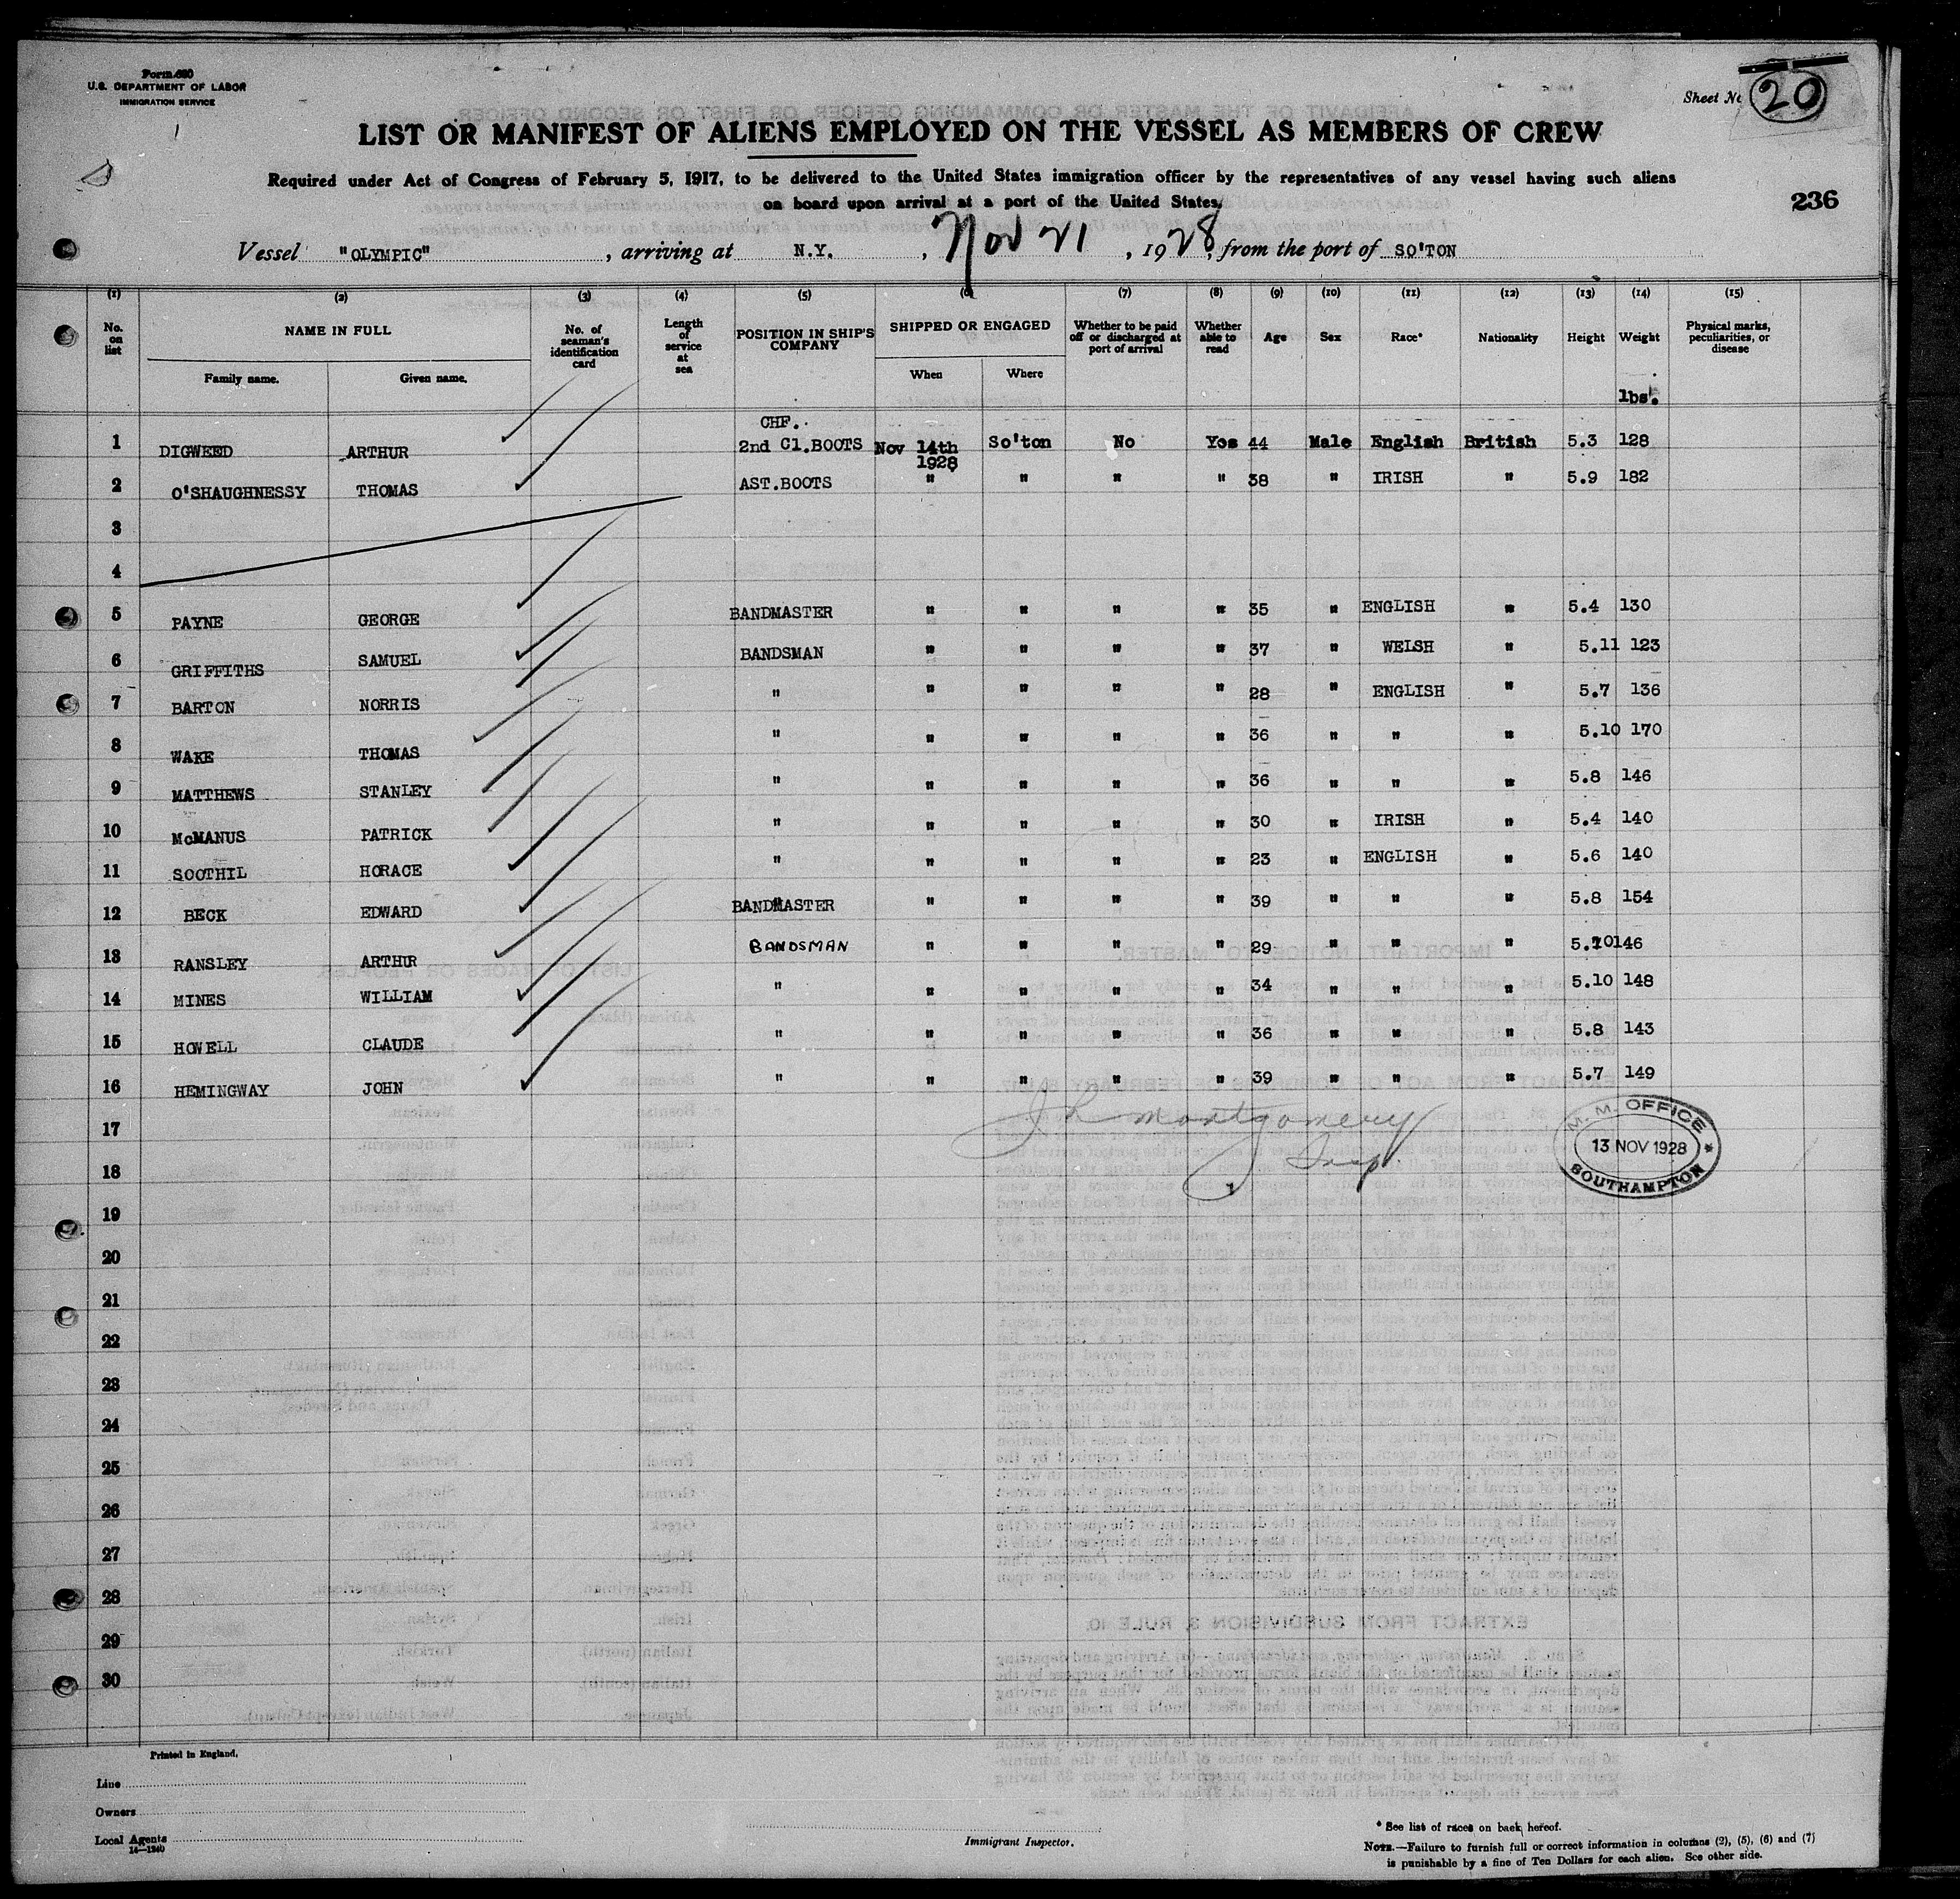 Form 680
U.S. DEPARTMENT OF LABOR
IMMIGRATION SERVICE
Sheet No 20
LIST OR MANIFEST OF ALIENS EMPLOYED ON THE VESSEL AS MEMBERS OF CREW
Required under Act of Congress of February 5, 1917, to be delivered to the United States immigration officer by the representatives of any vessel having such aliens
on board upon arrival at a port of the United States
236
Vessel "OLYMPIC", arriving at N.Y., Nov 21, 1928, from the port of SO'TON
(1) (2) (3) (4) (5) (6) (7) (8) (9) (10) (11) (12) (13) (14) (15)
No. on list NAME IN FULL No. of seaman's identification card Length of service at sea POSITION IN SHIP'S COMPANY SHIPPED OR ENGAGED Whether to be paid off or discharged at port of arrival Whether able to read Age Sex Race* Nationality Height Weight Physical marks, peculiarities, or disease
Family name. Given name. When Where
lbs.
CHF.
1 DIGWEED ARTHUR 2nd Cl.BOOTS Nov 14th 1928 So'ton No Yes 44 Male English British 5.3 128
2 O'SHAUGHNESSY THOMAS AST.BOOTS " " " " 38 " IRISH " 5.9 182
3
4
5 PAYNE GEORGE BANDMASTER " " " " 35 " ENGLISH " 5.4 130
6 GRIFFITHS SAMUEL BANDSMAN " " " " 37 " WELSH " 5.11 123
7 BARTON NORRIS " " " " " 28 " ENGLISH " 5.7 136
8 WAKE THOMAS " " " " " 36 " " " 5.10 170
9 MATTHEWS STANLEY " " " " " 36 " " " 5.8 146
10 McMANUS PATRICK " " " " " 30 " IRISH " 5.4 140
11 SOOTHIL HORACE " " " " " 23 " ENGLISH " 5.6 140
12 BECK EDWARD BANDMASTER " " " " 39 " " " 5.8 154
13 RANSLEY ARTHUR BANDSMAN " " " " 29 " " " 146
14 MINES WILLIAM " " " " " 34 " " " 5.10 148
15 HOWELL CLAUDE " " " " " 36 " " " 5.8 143
16 HEMINGWAY JOHN " " " " " 39 " " " 5.7 149
17
18
19
20
21
22
23
24
25
26
27
28
29
30
Montgomery
Insp.
M. M. OFFICE
13 NOV 1928
SOUTHAMPTON
Printed in England.
Line
Owners
Local Agents
14—1240
Immigrant Inspector.
* See list of races on back hereof.
NOTE.—Failure to furnish full or correct information in columns (2), (5), (6) and (7)
is punishable by a fine of Ten Dollars for each alien. See other side.